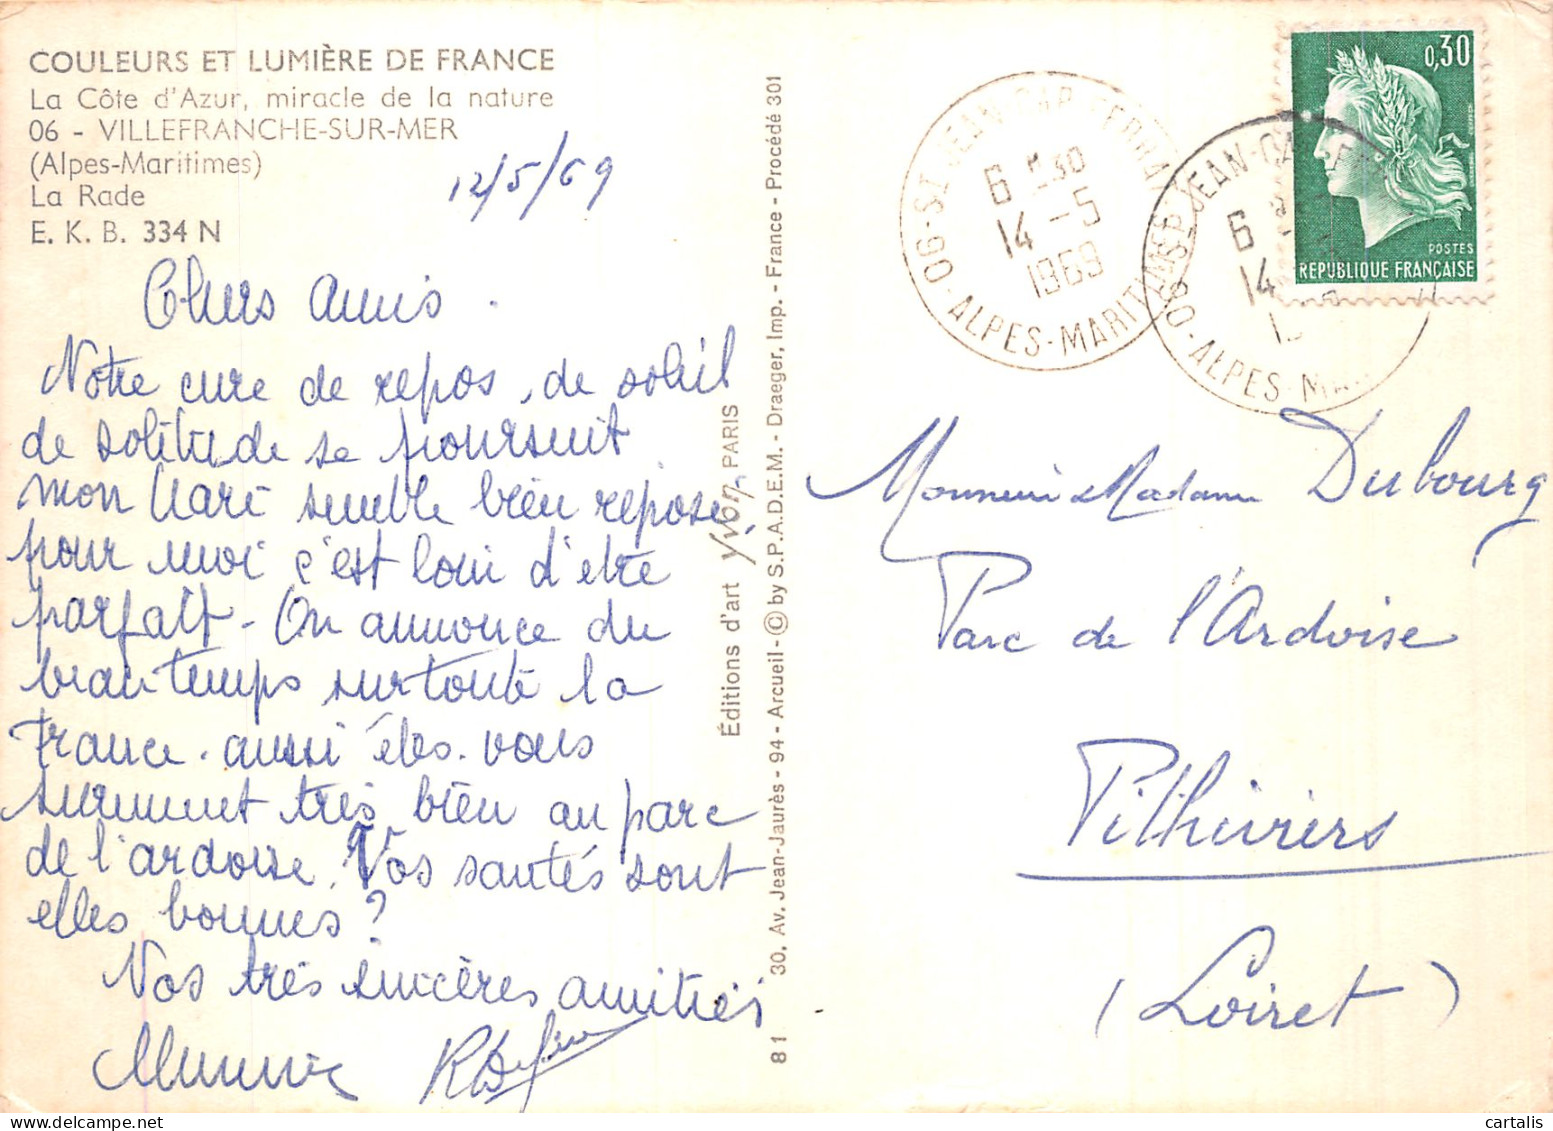 COULEURS ET LUMIÈRE DE FRANCE
La Côte d'Azur, miracle de la nature
06 - VILLEFRANCHE-SUR-MER
(Alpes-Maritimes)
La Rade
E. K. B. 334 N
12/5/69
Chers amis.
Notre cure de repos, de soleil
de solitude se poursuit
mon Mari semble bien reposé,
pour moi c'est loin d'être
parfait. On annonce du
beau temps sur toute la
France. aussi êtes-vous
surement très bien au parc
de l'ardoise. Vos santés sont
elles bonnes?
Nos très sincères amitiés
Éditions d'art Yvon PARIS
81 30, Av. Jean-Jaurès - 94 - Arcueil - © by S.P.A.D.E.M. - Draeger, Imp. - France - Procédé 301
06-ST JEAN-CAP-FERRAT
6 H 30
14 - 5
1969
ALPES-MARITIMES
06-ST JEAN-CAP-FE
6
14
ALPES-MA
0,30
POSTES
RÉPUBLIQUE FRANÇAISE
Monsieur Madame Dubourg
Parc de l'Ardoise
Pithiviers
(Loiret)
cartalis